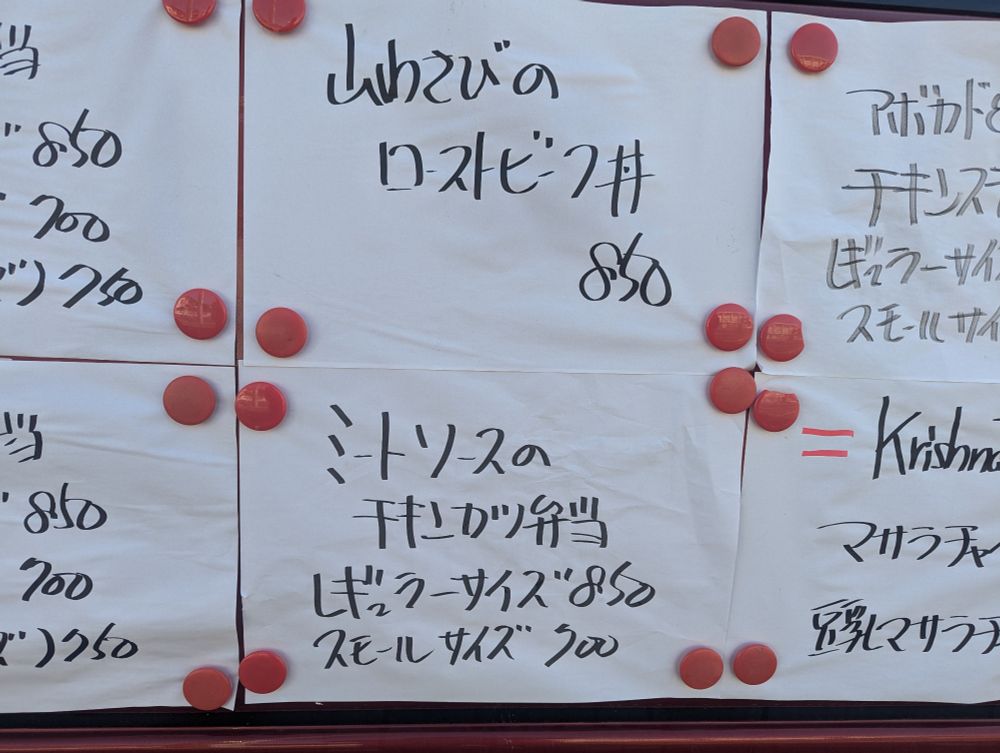 当
850
700
ズ)750
山わさびの
ローストビーフ丼
850
アボカド&
チキンステ
レギュラーサイズ
スモールサイ
当
850
700
ズ)750
ミートソースの
チキンカツ弁当
レギュラーサイズ850
スモールサイズ700
= Krishna
マサラチャイ
豆乳マサラチ